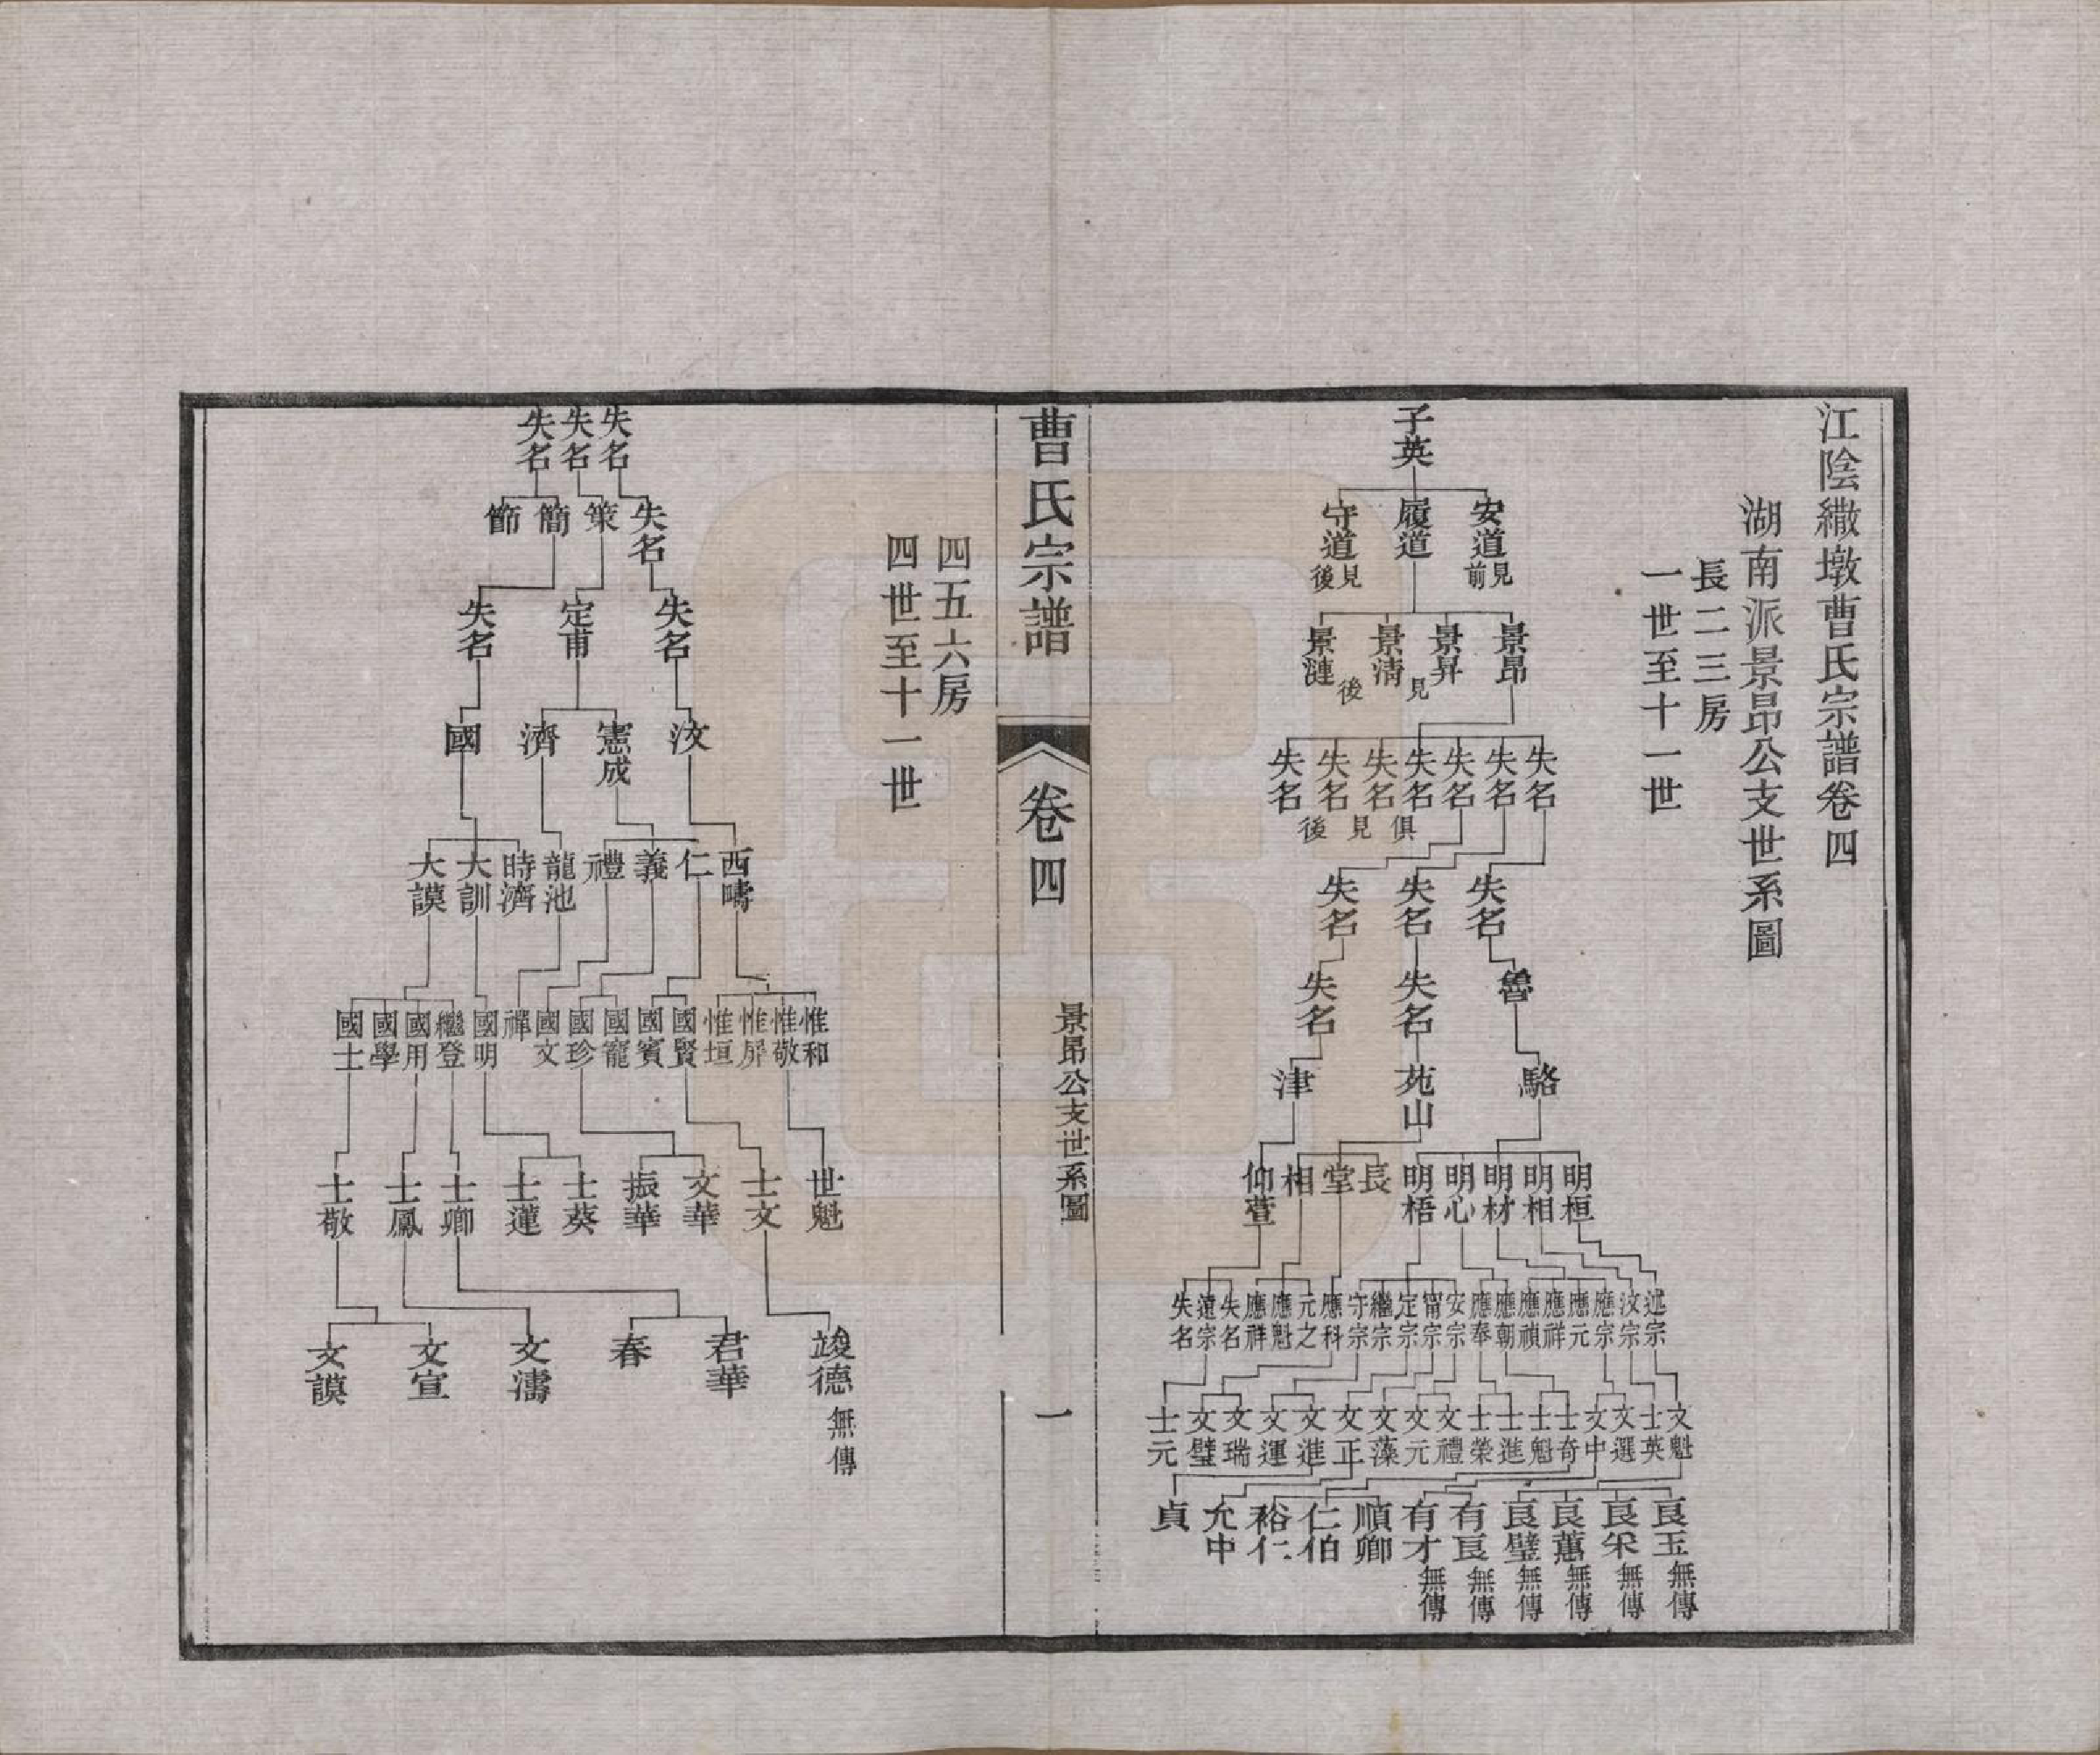 江陰繖墩曹氏宗譜卷四
湖南派景昂公支世系圖
長二三房
一世至十一世
子英
安道見前 履道 守道見後
景昂 景昇 景清 景漣 見後
失名 失名 失名 失名 失名 失名 失名 俱見後
失名 失名 失名
魯 失名 失名
駱 苑山 津
明桓 明相 明材 明心 明梧 長 堂 相 仰萱
述宗 汶宗 應宗 應元 應祥 應禎 應朝 應奉 安宗 甯宗 定宗 繼宗 守宗 應科 元之 應魁 應祥 失名 遠宗 失名
文魁 士英 文選 文中 士奇 士魁 士進 士榮 文禮 文元 文藻 文正 文進 文運 文瑞 文璧 士元
良玉無傳 良宋無傳 良蕙無傳 良璧無傳 有良無傳 有才無傳 順卿 仁伯 裕仁 允中 貞
曹氏宗譜 卷四 景昂公支世系圖 一
四五六房
四世至十一世
失名 失名 失名
失名 策 簡 節
失名 定甫 失名
汝 憲成 濟 國
西疇 仁 義 禮 龍池 時濟 大訓 大謨
惟和 惟敬 惟屏 惟垣 國賢 國賓 國寵 國珍 國文 禪 國明 繼登 國用 國學 國士
世魁 士文 文華 振華 士葵 士蓮 士卿 士鳳 士敬
竣德無傳 君華 春 文濤 文宣 文謨